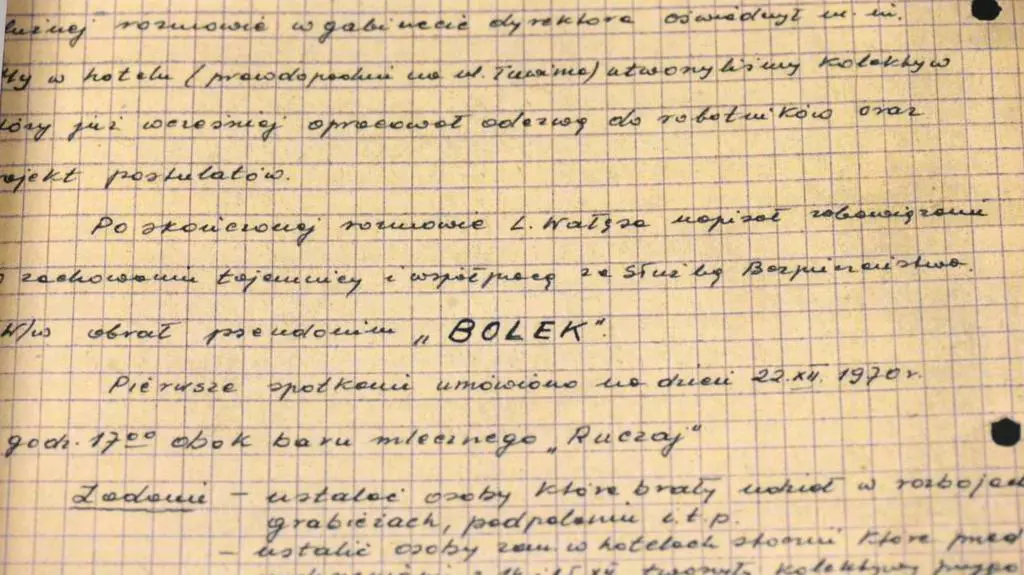 rozmowie w gabinecie dyrektora oświadczył m. in.
w hotelu (prawdopodobnie na ul. Tuwima) utworzyliśmy kolektyw
który już wcześniej opracował odezwę do robotników oraz
projekt postulatów.
Po skończonej rozmowie L. Wałęsa napisał zobowiązanie
o zachowaniu tajemnicy i współpracą ze Służbą Bezpieczeństwa.
W/w obrał pseudonim „BOLEK".
Pierwsze spotkanie umówiono na dzień 22.XII.1970 r.
godz. 17⁰⁰ obok baru mlecznego „Ruczaj"
Zadanie – ustalać osoby które brały udział w rozbojach
grabieżach, podpaleniu i.t.p.
– ustalić osoby zam. w hotelach stoczni które przed
14, 15 XII tworzyły kolektywy